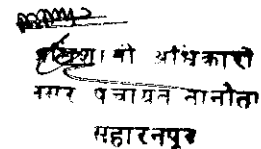 अधिशाषी अधिकारी
नगर पंचायत नानौता
सहारनपुर